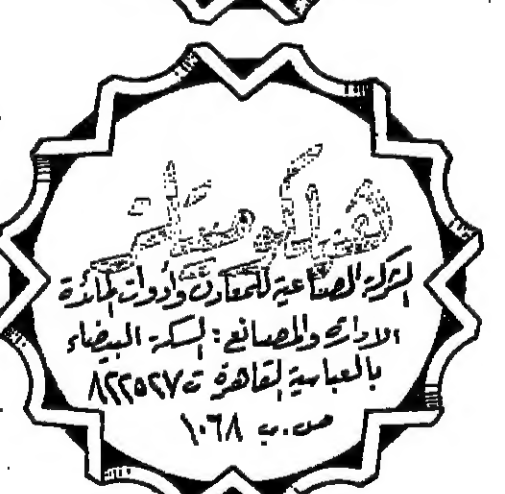 الشركة الصناعية للمعادن وأدوات المائدة
الادارة والمصانع : السكة البيضاء
بالعباسية القاهرة ت ٨٢٢٥٢٧
ص . ب ١٠٦٨